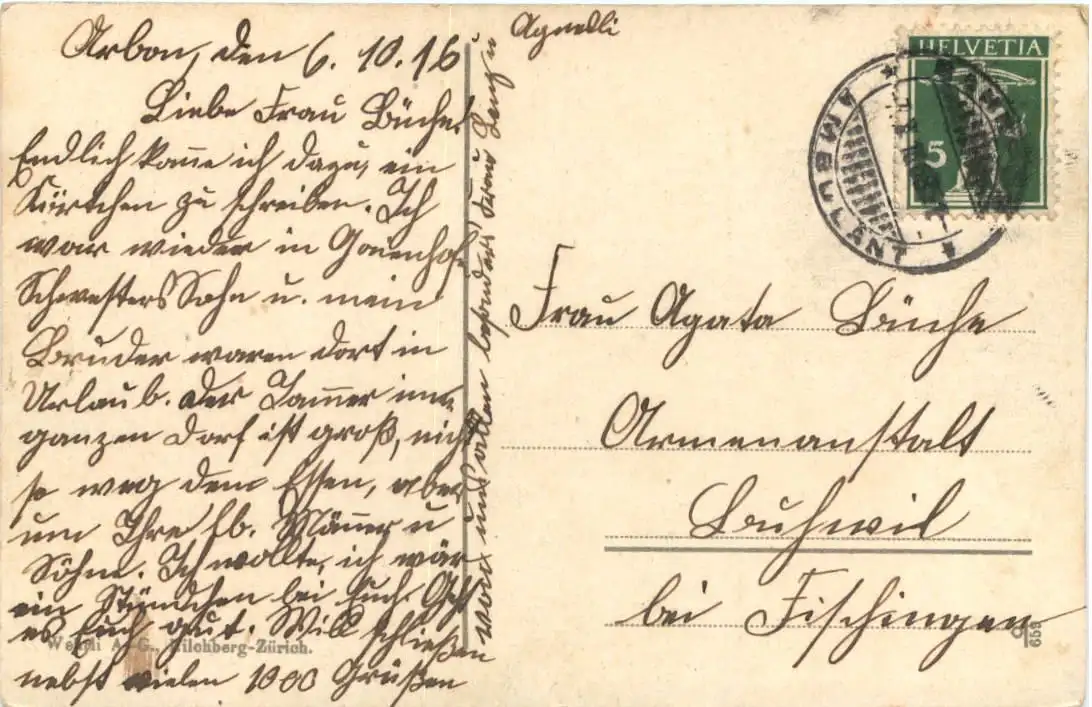 Arbon, den 6. 10. 16
Liebe Frau Büche!
Endlich komme ich dazu, ein
Kärtchen zu schreiben. Ich
war wieder in
Schwesters Sohn u. mein
Bruder waren dort in
Urlaub. Der Jammer im
ganzen Dorf ist groß, nicht
so weg dem Essen, aber
um Ihre lb. Männer u
Söhne. Ich wollte, ich wär
ein Stündchen bei Euch. Geht
es Euch gut. Will schließen
nebst vielen 1000 Grüßen
von uns allen besonders Frau
Agnelli
HELVETIA
5
AMBULANT
Frau Agata Büche
Armenanstalt
Buhwil
bei Fischingen
Wehrli A.-G., Kilchberg-Zürich.